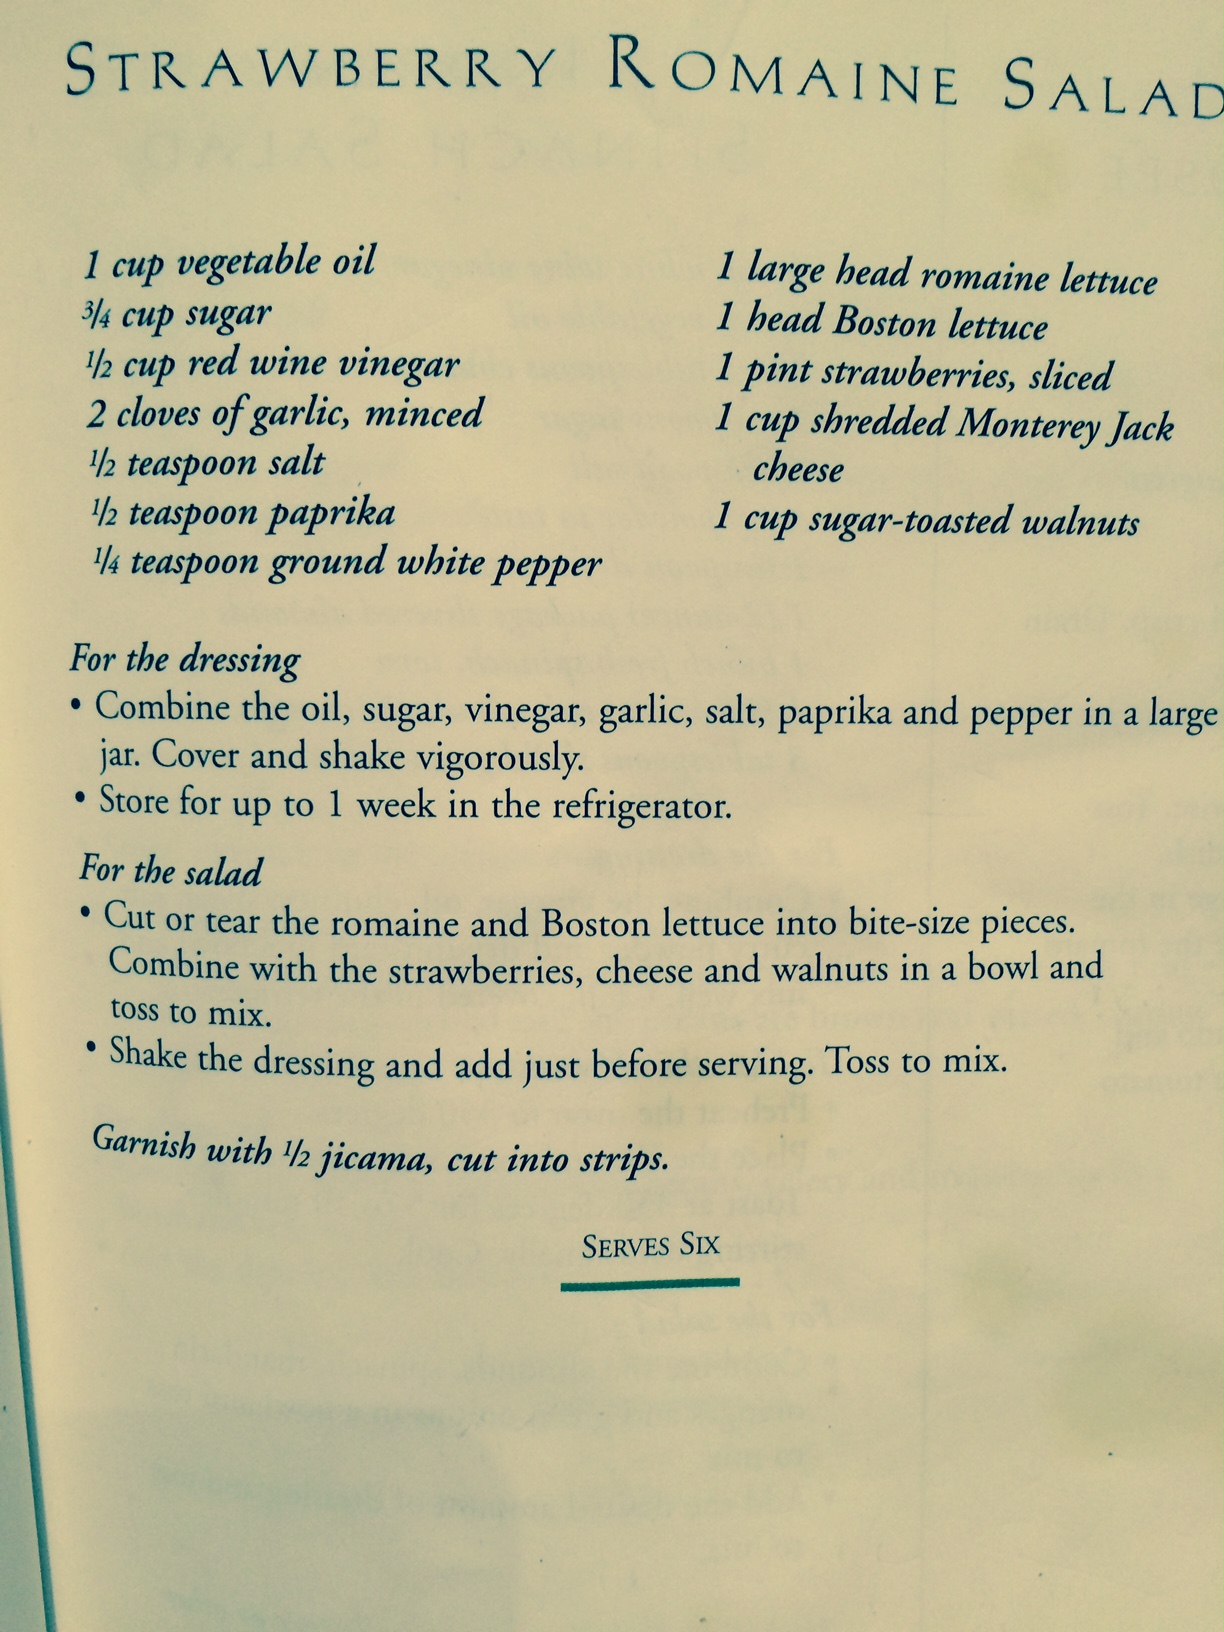 STRAWBERRY ROMAINE SALAD
1 cup vegetable oil
¾ cup sugar
½ cup red wine vinegar
2 cloves of garlic, minced
½ teaspoon salt
½ teaspoon paprika
¼ teaspoon ground white pepper
1 large head romaine lettuce
1 head Boston lettuce
1 pint strawberries, sliced
1 cup shredded Monterey Jack
cheese
1 cup sugar-toasted walnuts
For the dressing
• Combine the oil, sugar, vinegar, garlic, salt, paprika and pepper in a large
jar. Cover and shake vigorously.
• Store for up to 1 week in the refrigerator.
For the salad
• Cut or tear the romaine and Boston lettuce into bite-size pieces.
Combine with the strawberries, cheese and walnuts in a bowl and
toss to mix.
• Shake the dressing and add just before serving. Toss to mix.
Garnish with ½ jicama, cut into strips.
SERVES SIX